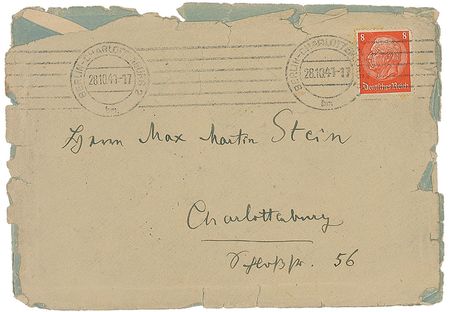 BERLIN-CHARLOTTENBURG 2
28.10.41-17
bm
BERLIN-CHARLOTTE
28.10.41-17
bm
8 8
Deutsches Reich
Herrn Max Martin Stein
Charlottenburg
Schloßstr. 56